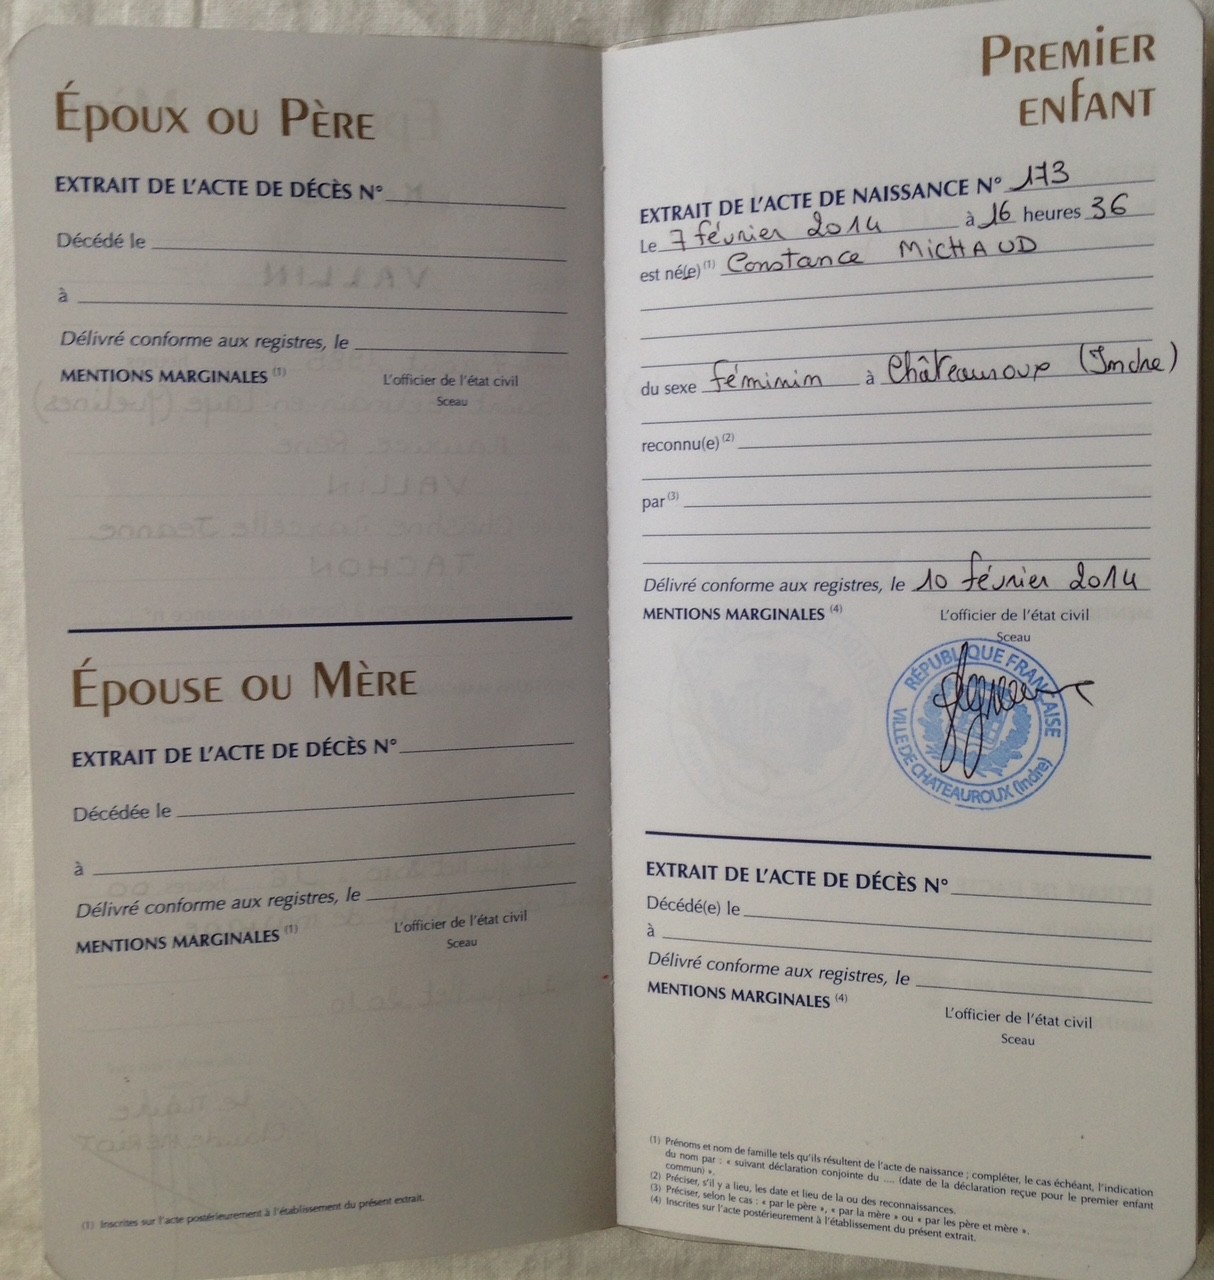 Époux ou Père
EXTRAIT DE L'ACTE DE DÉCÈS N°
Décédé le
à
Délivré conforme aux registres, le
MENTIONS MARGINALES (1)
L'officier de l'état civil
Sceau
Épouse ou Mère
EXTRAIT DE L'ACTE DE DÉCÈS N°
Décédée le
à
Délivré conforme aux registres, le
MENTIONS MARGINALES (1)
L'officier de l'état civil
Sceau
(1) Inscrites sur l'acte postérieurement à l'établissement du présent extrait.
PREMIER
ENFANT
EXTRAIT DE L'ACTE DE NAISSANCE N° 173
Le 7 février 2014 à 16 heures 36
est né(e) (1) Constance MICHAUD
du sexe féminin à Châteauroux (Indre)
reconnu(e) (2)
par (3)
Délivré conforme aux registres, le 10 février 2014
MENTIONS MARGINALES (4)
L'officier de l'état civil
Sceau
RÉPUBLIQUE FRANÇAISE
VILLE DE CHATEAUROUX (Indre)
EXTRAIT DE L'ACTE DE DÉCÈS N°
Décédé(e) le
à
Délivré conforme aux registres, le
MENTIONS MARGINALES (4)
L'officier de l'état civil
Sceau
(1) Prénoms et nom de famille tels qu'ils résultent de l'acte de naissance ; compléter, le cas échéant, l'indication
du nom par : « suivant déclaration conjointe du .... (date de la déclaration reçue pour le premier enfant
commun) ».
(2) Préciser, s'il y a lieu, les date et lieu de la ou des reconnaissances.
(3) Préciser, selon le cas : « par le père », « par la mère » ou « par les père et mère ».
(4) Inscrites sur l'acte postérieurement à l'établissement du présent extrait.